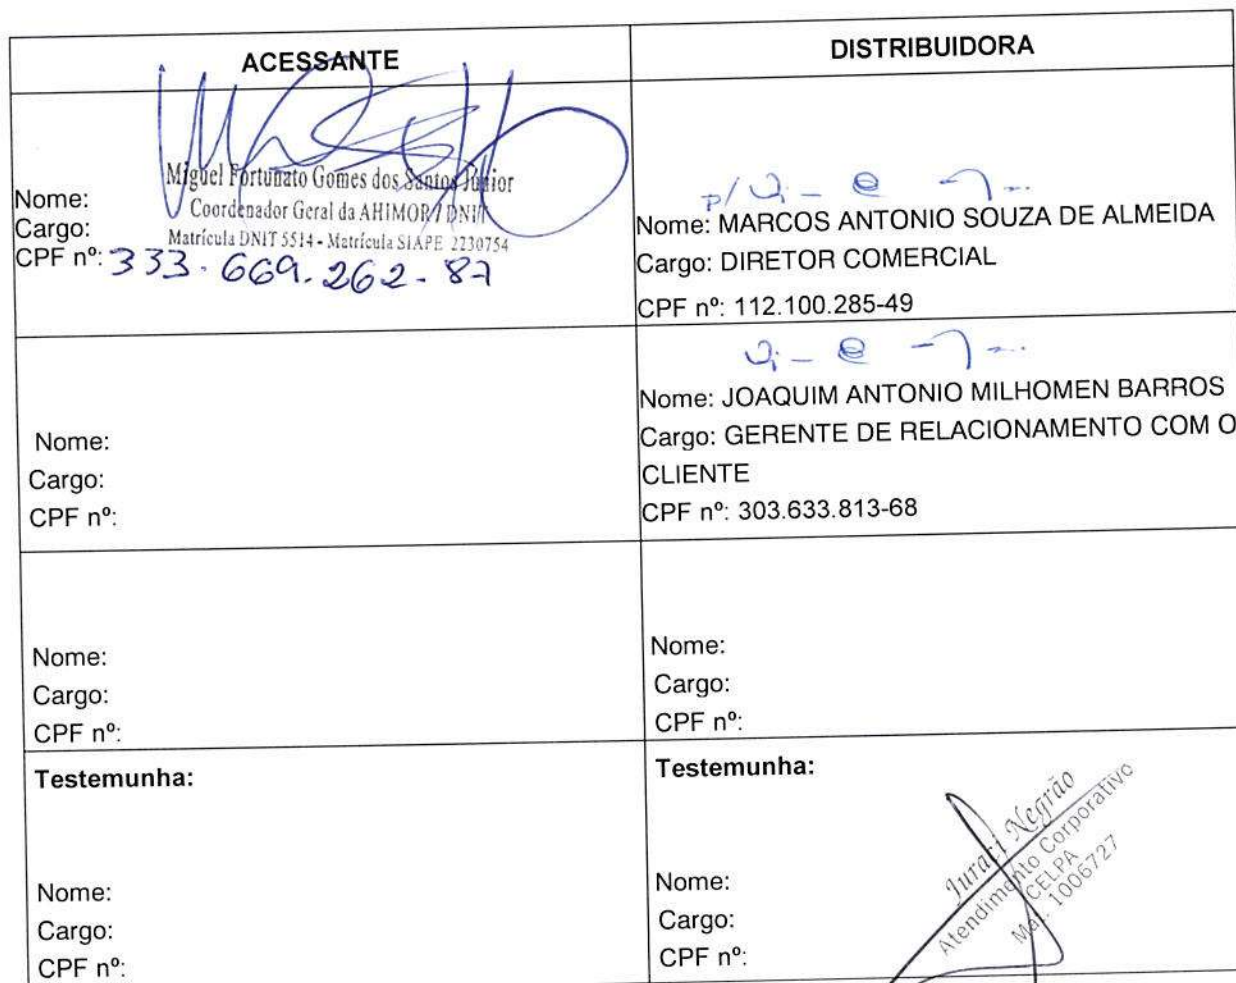 ACESSANTE
DISTRIBUIDORA
Miguel Fortunato Gomes dos Santos Júnior
Coordenador Geral da AHIMOR / DNIT
Matrícula DNIT 5514 - Matrícula SIAPE 2230754
Nome:
Cargo:
CPF nº: 333.669.262-87
p/
Nome: MARCOS ANTONIO SOUZA DE ALMEIDA
Cargo: DIRETOR COMERCIAL
CPF nº: 112.100.285-49
Nome:
Cargo:
CPF nº:
Nome: JOAQUIM ANTONIO MILHOMEN BARROS
Cargo: GERENTE DE RELACIONAMENTO COM O
CLIENTE
CPF nº: 303.633.813-68
Nome:
Cargo:
CPF nº:
Nome:
Cargo:
CPF nº:
Testemunha:
Nome:
Cargo:
CPF nº:
Testemunha:
Nome:
Cargo:
CPF nº:
Juraci Negrão
Atendimento Corporativo
CELPA
Mat. 1006727